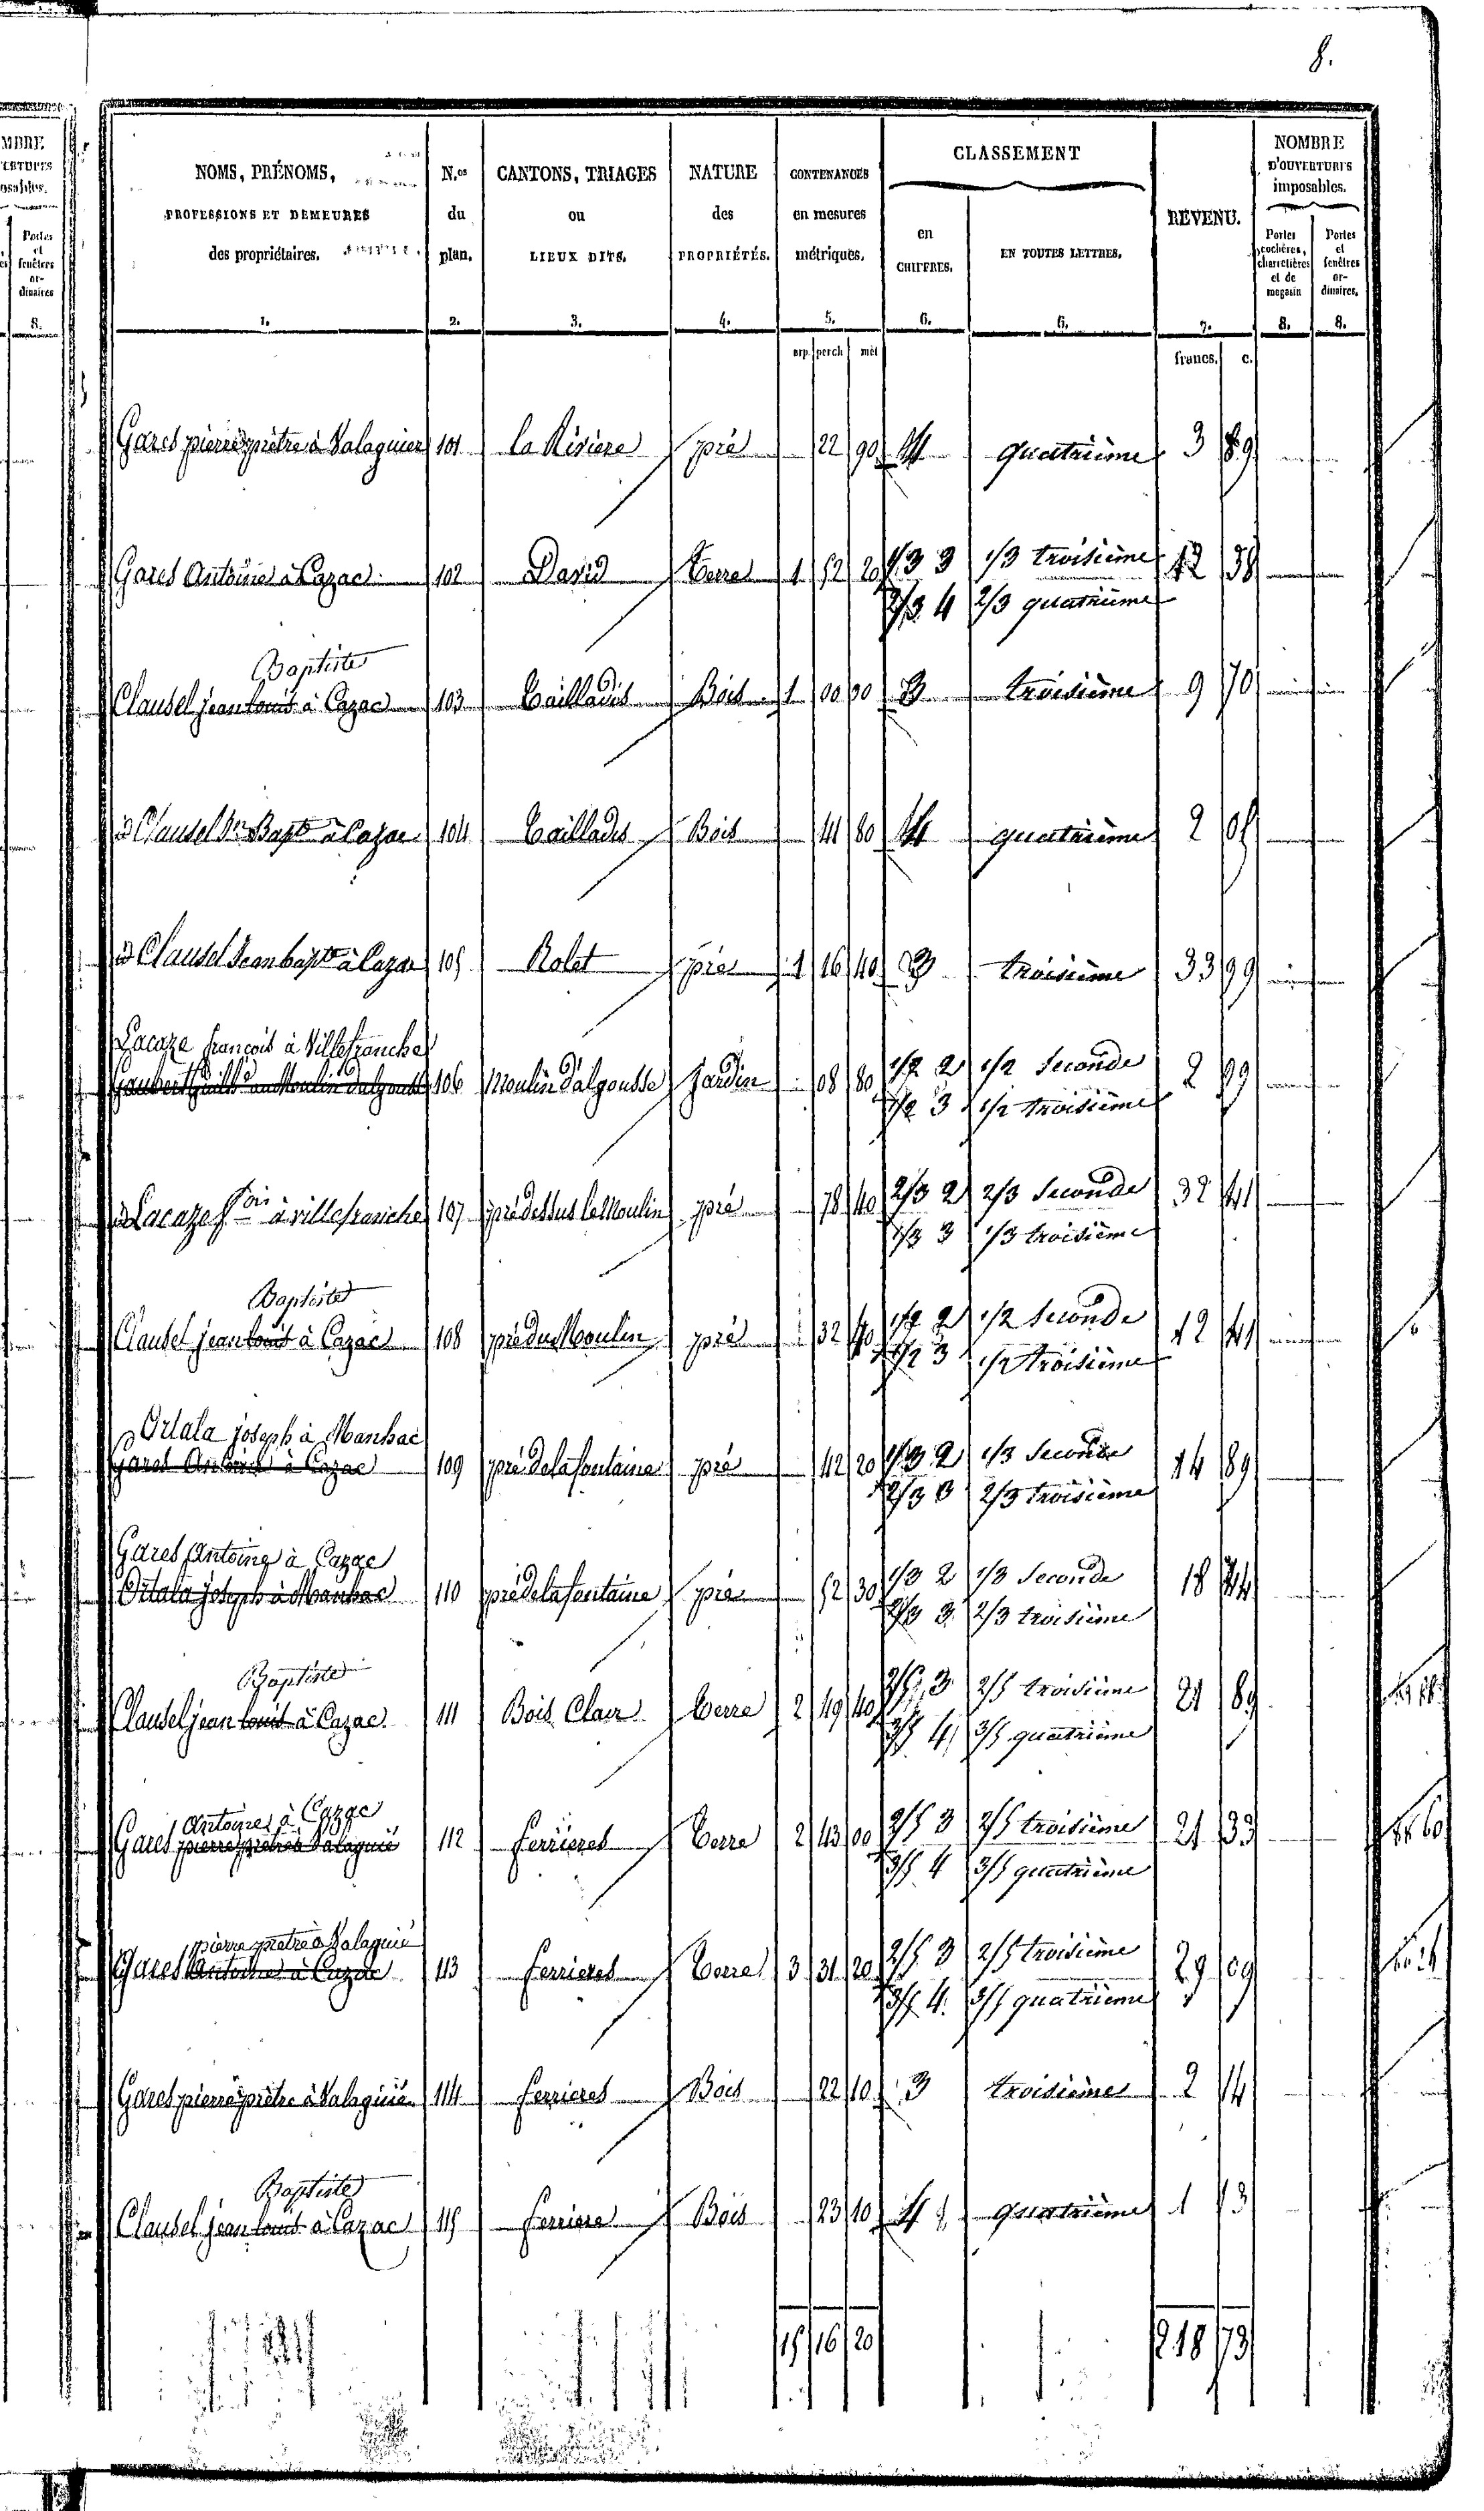 8.
NOMS, PRÉNOMS, N.os CANTONS, TRIAGES NATURE CONTENANCES CLASSEMENT REVENU. NOMBRE D'OUVERTURES imposables.
PROFESSIONS ET DEMEURES du ou des en mesures en EN TOUTES LETTRES. Portes cochères, charretières et de magasin Portes et fenêtres or- dinaires.
des propriétaires. plan. LIEUX DITS. PROPRIÉTÉS. métriques. CHIFFRES.
1. 2. 3. 4. 5. 6. 6. 7. 8. 8.
arp. perch mèt francs. c.
Gares pierre prètre à Valaguier 101 la Riviere pré 22 90 4 quatrième 3 89
Gares Antoine à Cazac 102 David Terre 1 52 20 1/3 3 1/3 troisième 12 38
2/3 4 2/3 quatrième
Baptiste
Clausel jean louis à Cazac 103 Taillades Bois 1 00 00 3 troisième 9 70
d Clausel Jn Bapte à Cazac 104 Taillades Bois 41 80 4 quatrième 2 05
d Clausel Jean bapte à Cazac 105 Rolet pré 1 16 40 3 troisième 33 99
Lacaze françois à Villefranche
106 Moulin d'algousse Jardin 08 80 1/2 2 1/2 Seconde 2 99
1/2 3 1/2 troisième
d Lacaze fois à villefranche 107 pré dessus le Moulin pré 78 40 2/3 2 2/3 Seconde 32 41
1/3 3 1/3 troisième
Baptiste
Clausel jean louis à Cazac 108 pré du Moulin pré 32 40 1/2 2 1/2 Seconde 12 41
1/2 3 1/2 troisième
Ortala joseph à Manhac
Gares Antoine à Cazac 109 pré de la fontaine pré 42 20 1/3 2 1/3 Seconde 14 89
2/3 3 2/3 troisième
Gares Antoine à Cazac
Ortala joseph à Manhac 110 pré de la fontaine pré 52 30 1/3 2 1/3 Seconde 18 44
2/3 3 2/3 troisième
Baptiste
Clausel jean louis à Cazac 111 Bois Clair Terre 2 49 40 2/5 3 2/5 troisième 21 89
3/5 4 3/5 quatrième
Antoine à Cazac
Gares pierre prètre à Valaguié 112 ferrieres Terre 2 43 00 2/5 3 2/5 troisième 21 33
3/5 4 3/5 quatrième
pierre pretre à Valaguié
Gares Antoine à Cazac 113 ferrieres Terre 3 31 20 2/5 3 2/5 troisième 29 09
3/5 4 3/5 quatrième
Gares pierre prètre à Valaguié 114 ferrieres Bois 22 10 3 troisième 2 14
Baptiste
Clausel jean louis à Cazac 115 ferriere Bois 23 10 4 quatrième 1 13
15 16 20 218 73